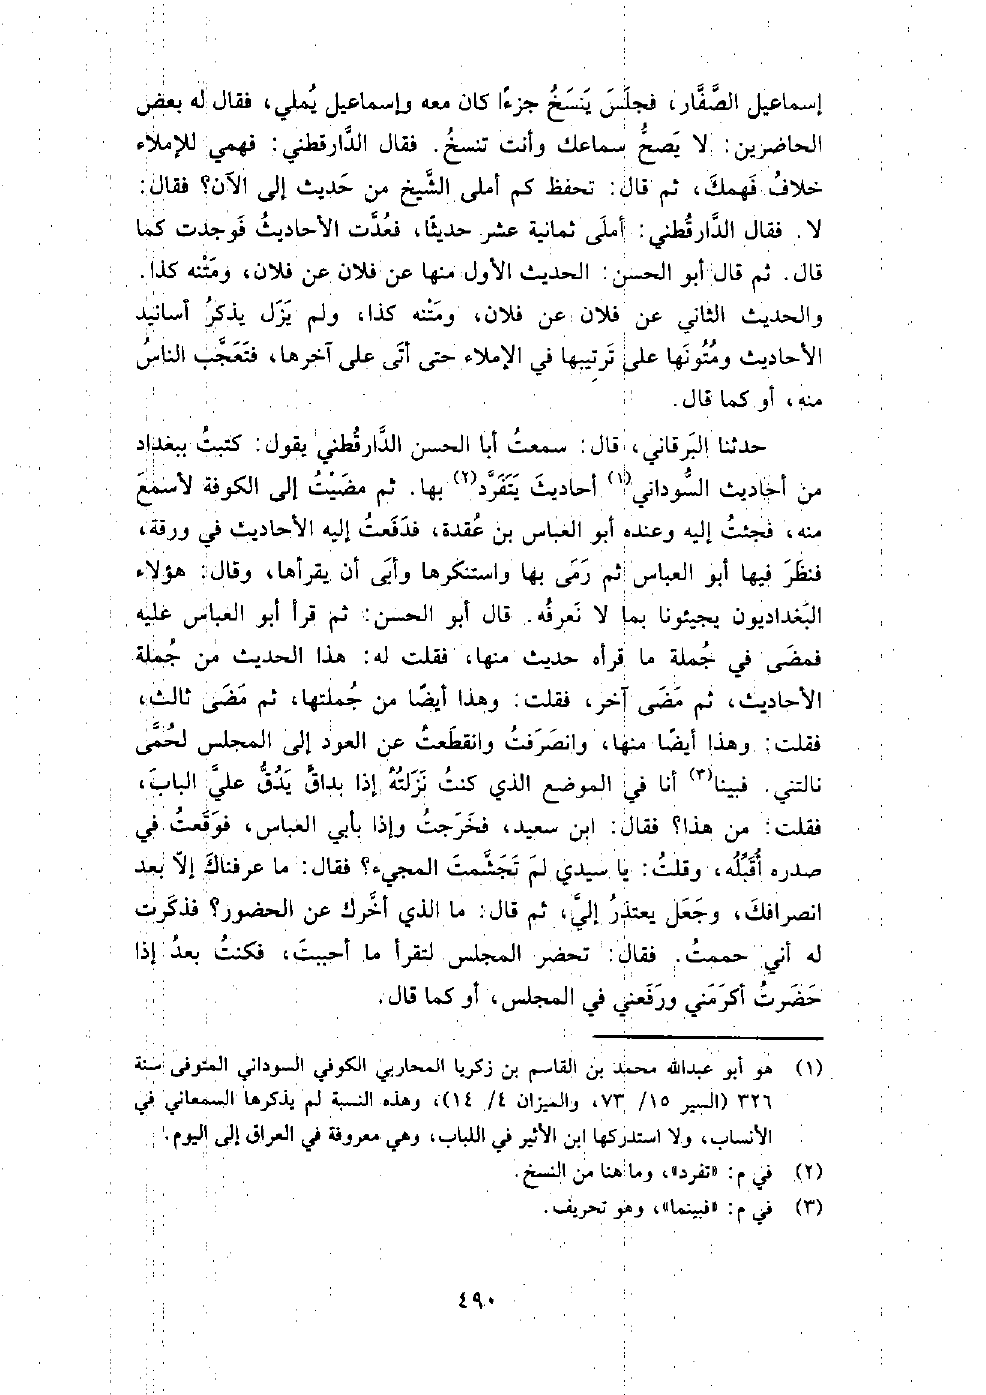 إسماعيل الصَّفَّار، فجلَسَ يَنسَخُ جزءًا كان معه وإسماعيل يُملي، فقال له بعض
الحاضرين: لا يَصحُّ سماعك وأنت تنسخُ. فقال الدَّارقطني: فهمي للإملاء
خلافُ فَهمكَ، ثم قال: تحفظ كم أملى الشَّيخ من حَديث إلى الآن؟ فقال:
لا. فقال الدَّارقُطني: أملَى ثمانية عشر حديثًا، فعُدَّت الأحاديثُ فَوجدت كما
قال. ثم قال أبو الحسن: الحديث الأول منها عن فلان عن فلان، ومَتْنه كذا.
والحديث الثاني عن فلان عن فلان، ومَتْنه كذا، ولم يَزَل يذكرُ أسانيد
الأحاديث ومُتُونَها على تَرتيبها في الإملاء حتى أتَى على آخرها، فتَعَجَّب الناسُ
منه، أو كما قال.
حدثنا البَرقاني، قال: سمعتُ أبا الحسن الدَّارقُطني يقول: كتبتُ ببغداد
من أحاديث السُّوداني(١) أحاديثَ يَتَفَرَّد(٢) بها. ثم مضَيْتُ إلى الكوفة لأسمعَ
منه، فجئتُ إليه وعنده أبو العباس بن عُقدة، فدَفَعتُ إليه الأحاديث في ورقة،
فنظَرَ فيها أبو العباس ثم رَمَى بها واستنكرها وأبَى أن يقرأها، وقال: هؤلاء
البَغداديون يجيئونا بما لا نَعرفُه. قال أبو الحسن: ثم قرأ أبو العباس عليه
فمضَى في جُملة ما قرأه حديث منها، فقلت له: هذا الحديث من جُملة
الأحاديث، ثم مَضَى آخر، فقلت: وهذا أيضًا من جُملتها، ثم مَضَى ثالث،
فقلت: وهذا أيضًا منها، وانصَرَفتُ وانقطَعتُ عن العود إلى المجلس لحُمَّى
نالتني. فبينا(٣) أنا في الموضع الذي كنتُ نَزَلتُهُ إذا بداقٍّ يَدُقُّ عليَّ البابَ،
فقلت: من هذا؟ فقال: ابن سعيد، فخَرَجتُ وإذا بأبي العباس، فوَقَعتُ في
صدره أُقَبِّلُه، وقلتُ: يا سيدي لمَ تَجَشَّمتَ المجيء؟ فقال: ما عرفناكَ إلاّ بعد
انصرافكَ، وجَعَل يعتذرُ إليَّ، ثم قال: ما الذي أخَّرك عن الحضور؟ فذكَرت
له أني حممتُ. فقال: تحضر المجلس لتقرأ ما أحببتَ، فكنتُ بعدُ إذا
حَضَرتُ أكرَمَني ورَفَعني في المجلس، أو كما قال.
(١) هو أبو عبدالله محمد بن القاسم بن زكريا المحاربي الكوفي السوداني المتوفى سنة
٣٢٦ (السير ١٥/ ٧٣، والميزان ٤/ ١٤)، وهذه النسبة لم يذكرها السمعاني في
الأنساب، ولا استدركها ابن الأثير في اللباب، وهي معروفة في العراق إلى اليوم.
(٢) في م: «تفرد»، وما هنا من النسخ.
(٣) في م: «فبينما»، وهو تحريف.
٤٩٠